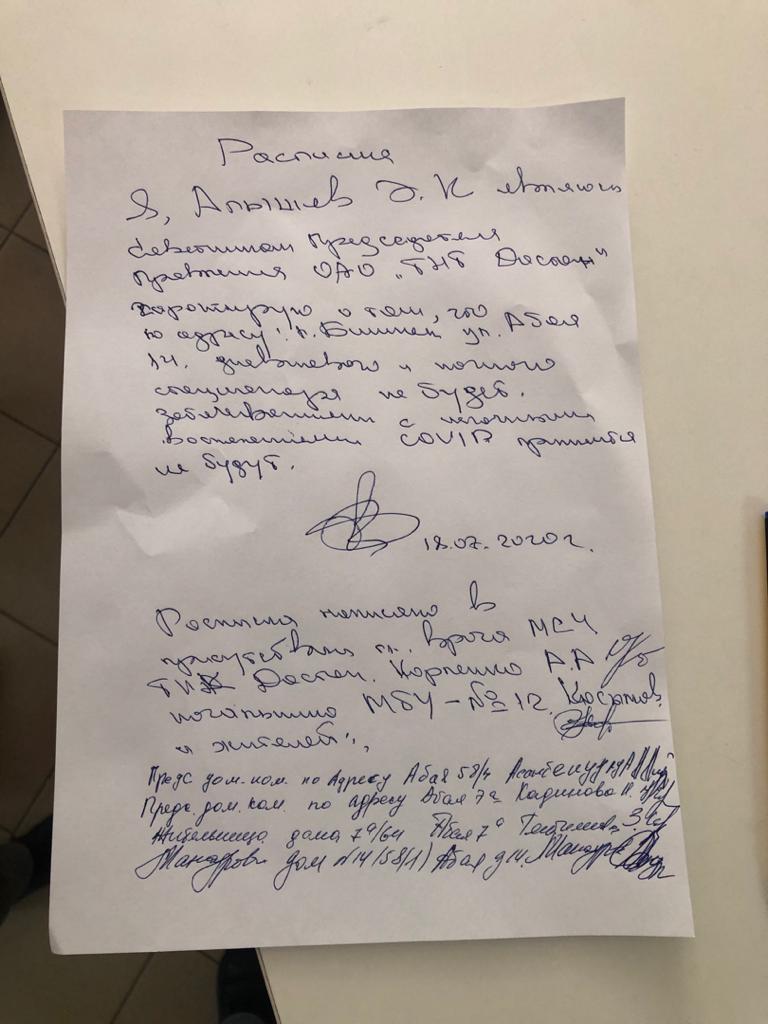 Расписка
Я, Апышев Э. К являюсь
Советником Председателя
Правления ОАО „ТНТ Даспан"
гарантирую о том, что
по адресу: г. Бишкек ул. Абая
14. дневного и ночного
стационара не будет.
заболеваниями с легочными
воспалениями COVID приниматся
не будут.
18.07.2020 г.
Росписка написано в
присутствии гл. врача МСЧ
Даспан. Карпенко А.А
начальника МБУ - № 12.
и жителей:
Предс. дом. ком. по Адресу Абая 58/4
Предс. дом. ком. по адресу Абая 7а Кадинова
Жительница дома 7а/64 Абая 7а
дом № 14 (58/1) Абая д 14.